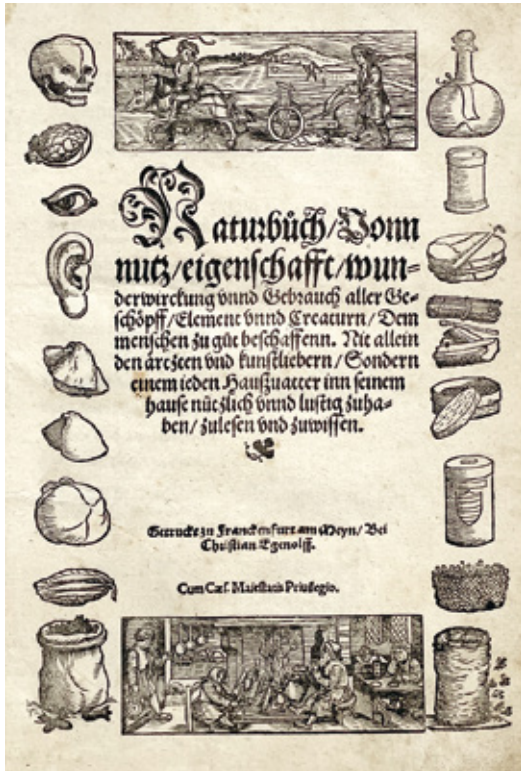 Naturbůch/Vonn
nutz/eigenschafft/wun⸗
derwirckung vnnd Gebrauch aller Ge⸗
schöpff/Element vnnd Creaturn/Dem
menschen zu gůt beschaffenn. Nit allein
den ärczten vnd kunstliebern/Sondern
einem ieden Haußuatter inn seinem
hause nützlich vnnd lustig zuha⸗
ben/zulesen vnd zuwissen.
Getruckt zu Franckenfurt am Meyn/Bei
Christian Egenolff.
Cum Cæs. Maiestatis Priuilegio.